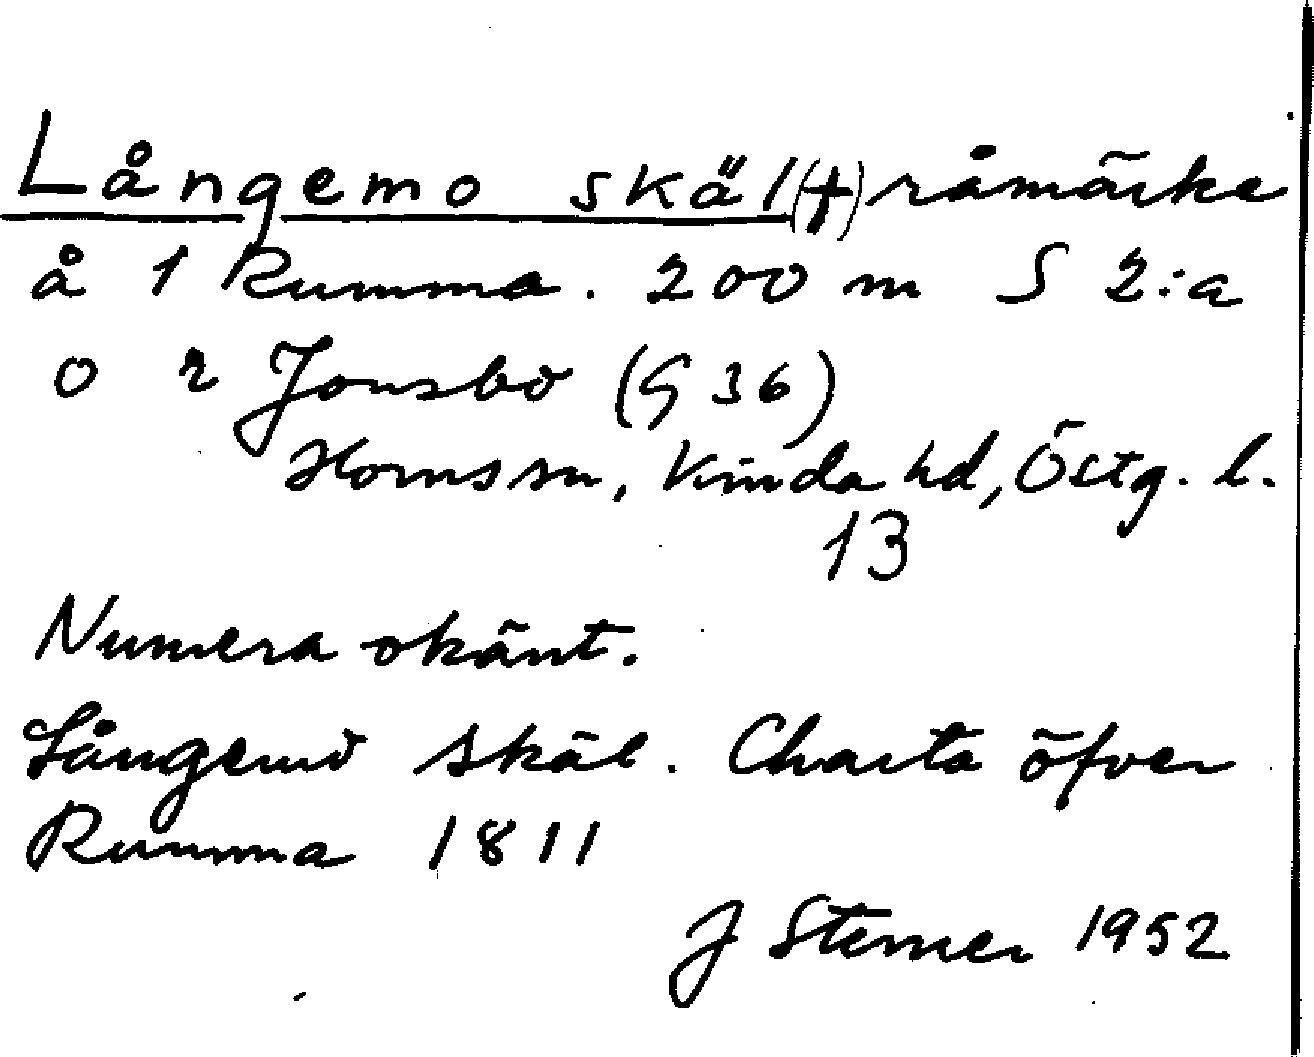 Långemo skäl (†) råmärke
å 1 Rumma. 200 m S 2:a
o r Jonsbo (G 36)
Horns sn, Kinda hd, Östg. l.
13
Numera okänt.
Långemo skäl. Charta öfver
Rumma 1811
J Sterner 1952